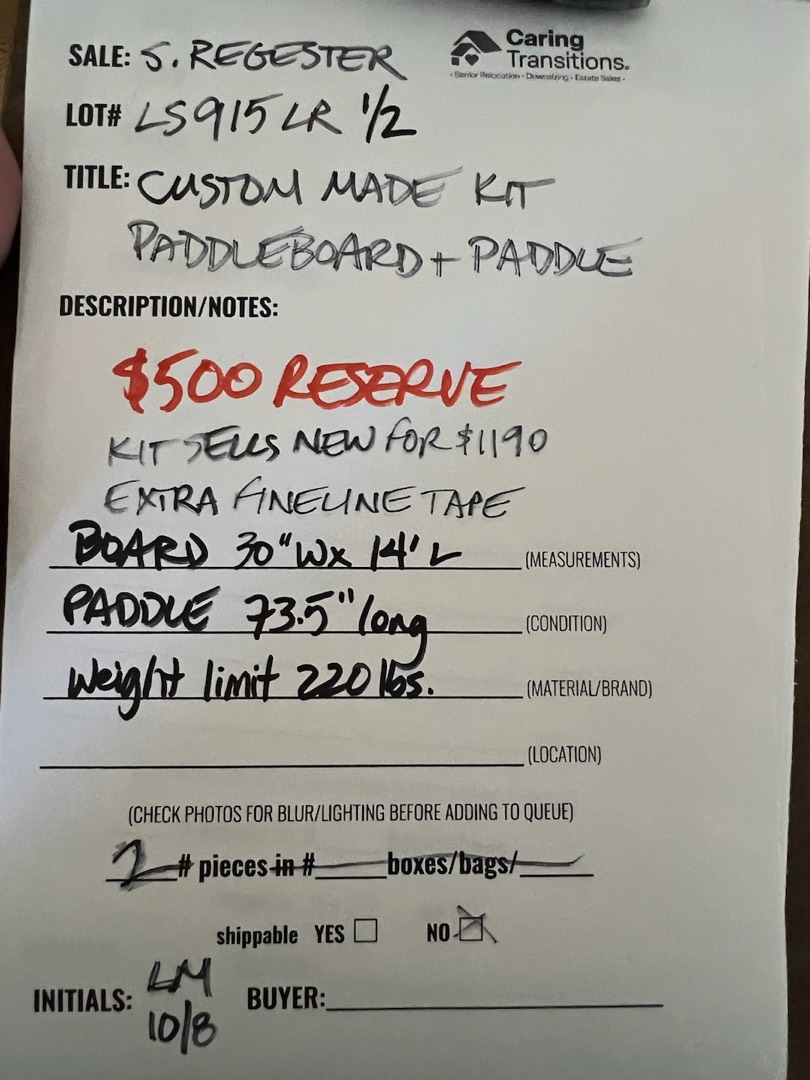 SALE: S. REGESTER
Caring
Transitions.
• Senior Relocation • Downsizing • Estate Sales •
LOT# LS915 LR 1/2
TITLE: CUSTOM MADE KIT
PADDLEBOARD + PADDLE
DESCRIPTION/NOTES:
$500 RESERVE
KIT SELLS NEW FOR $1190
EXTRA FINELINE TAPE
BOARD 30" W x 14' L (MEASUREMENTS)
PADDLE 73.5" long (CONDITION)
Weight limit 220 lbs. (MATERIAL/BRAND)
(LOCATION)
(CHECK PHOTOS FOR BLUR/LIGHTING BEFORE ADDING TO QUEUE)
2 # pieces in # boxes/bags/
shippable YES ☐ NO ☒
INITIALS: LM BUYER:
10/8